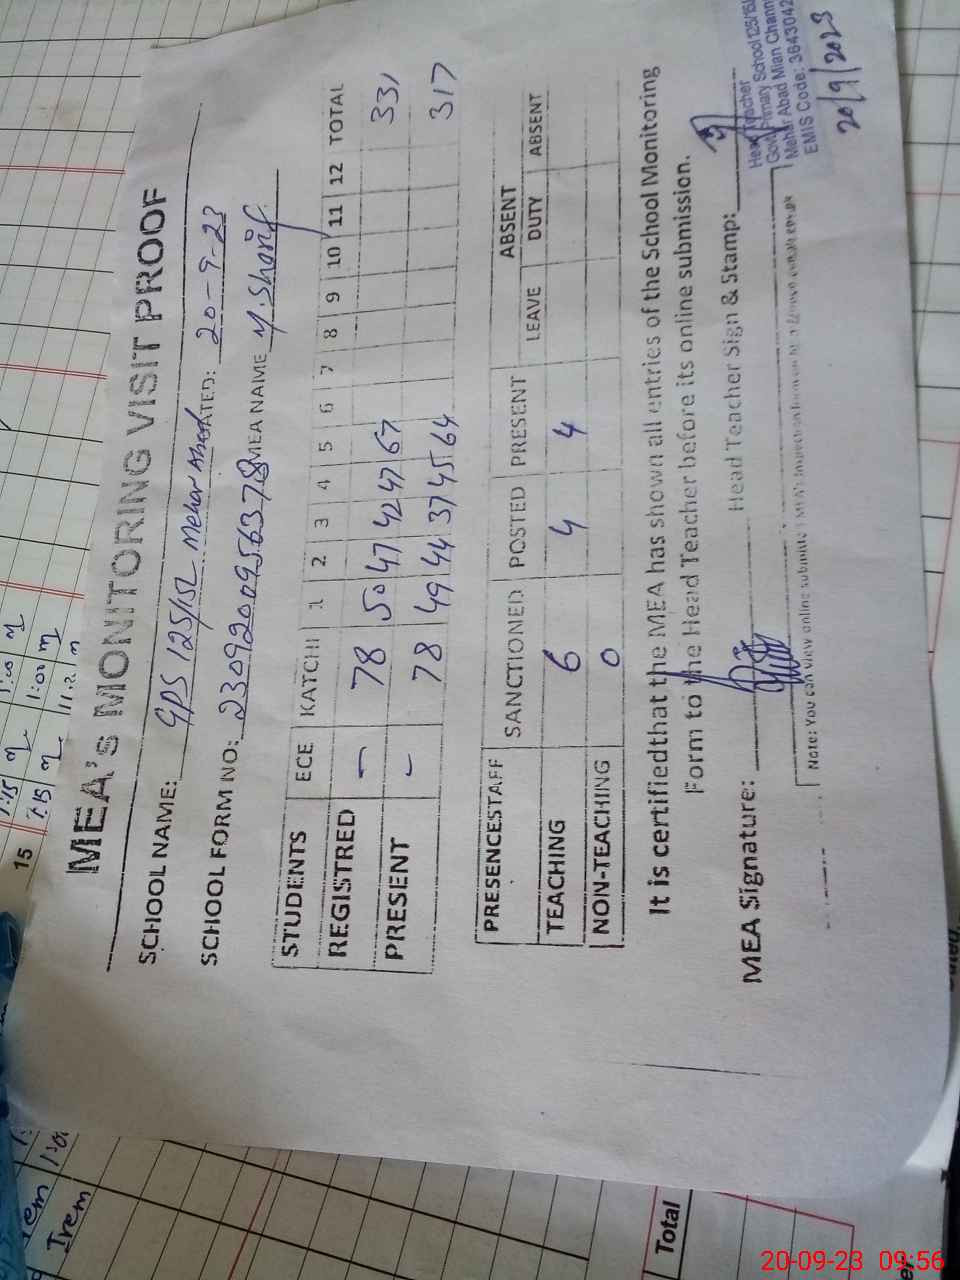 MEA's MONITORING VISIT PROOF
SCHOOL NAME: GPS 125/15L Mehar Abad DATED: 20-9-23
SCHOOL FORM NO: 2309200956378 MEA NAME M. Sharif
STUDENTS ECE KATCHI 1 2 3 4 5 6 7 8 9 10 11 12 TOTAL
REGISTRED - 78 50 47 42 47 67 331
PRESENT - 78 49 44 37 45 64 317
PRESENCESTAFF SANCTIONED POSTED PRESENT ABSENT
LEAVE DUTY ABSENT
TEACHING 6 4 4
NON-TEACHING 0
It is certifiedthat the MEA has shown all entries of the School Monitoring
Form to the Head Teacher before its online submission.
MEA Signature: Head Teacher Sign & Stamp:
Head Teacher
Govt. Primary School 125/15L
Mehar Abad Mian Channu
EMIS Code: 3643042
20/9/2023
Note: You can view online
15
7:15 1:00
7:15 1:00
11.2
Irem
Total
20-09-23 09:56